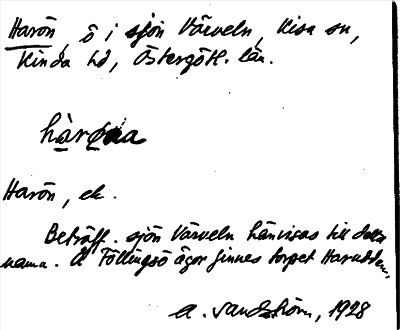 Harön, ö i sjön Värveln, Kisa sn,
Kinda hd, Östergötl. län.
häröna
Harön, ek.
Beträff. sjön Värveln hänvisas till detta
namn. Å Föllingsö ägor finnes torpet Harudden.
A. Sandström, 1928